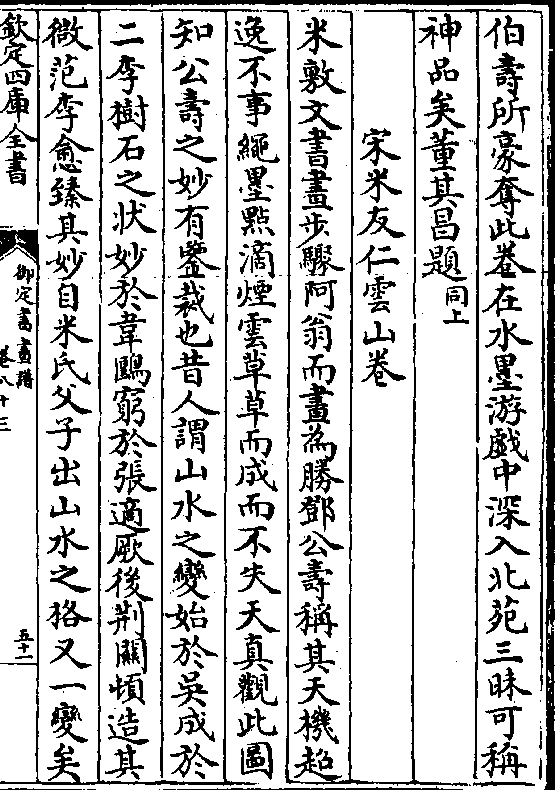 伯壽所豪奪此卷在水墨游戲中深入北苑三昧可稱
神品矣董其昌題同上
宋米友仁雲山卷
米敷文書畫步驟阿翁而畫為勝鄧公壽稱其天機超
逸不事繩墨點滴煙雲草草而成而不失天真觀此圖
知公壽之妙有鑒裁也昔人謂山水之變始於吳成於
二李樹石之狀妙於韋鶠窮於張適厥後荆關頓造其
微范李愈臻其妙自米氏父子出山水之格又一變矣
欽定四庫全書
御定書畫譜
卷八十三
五十一